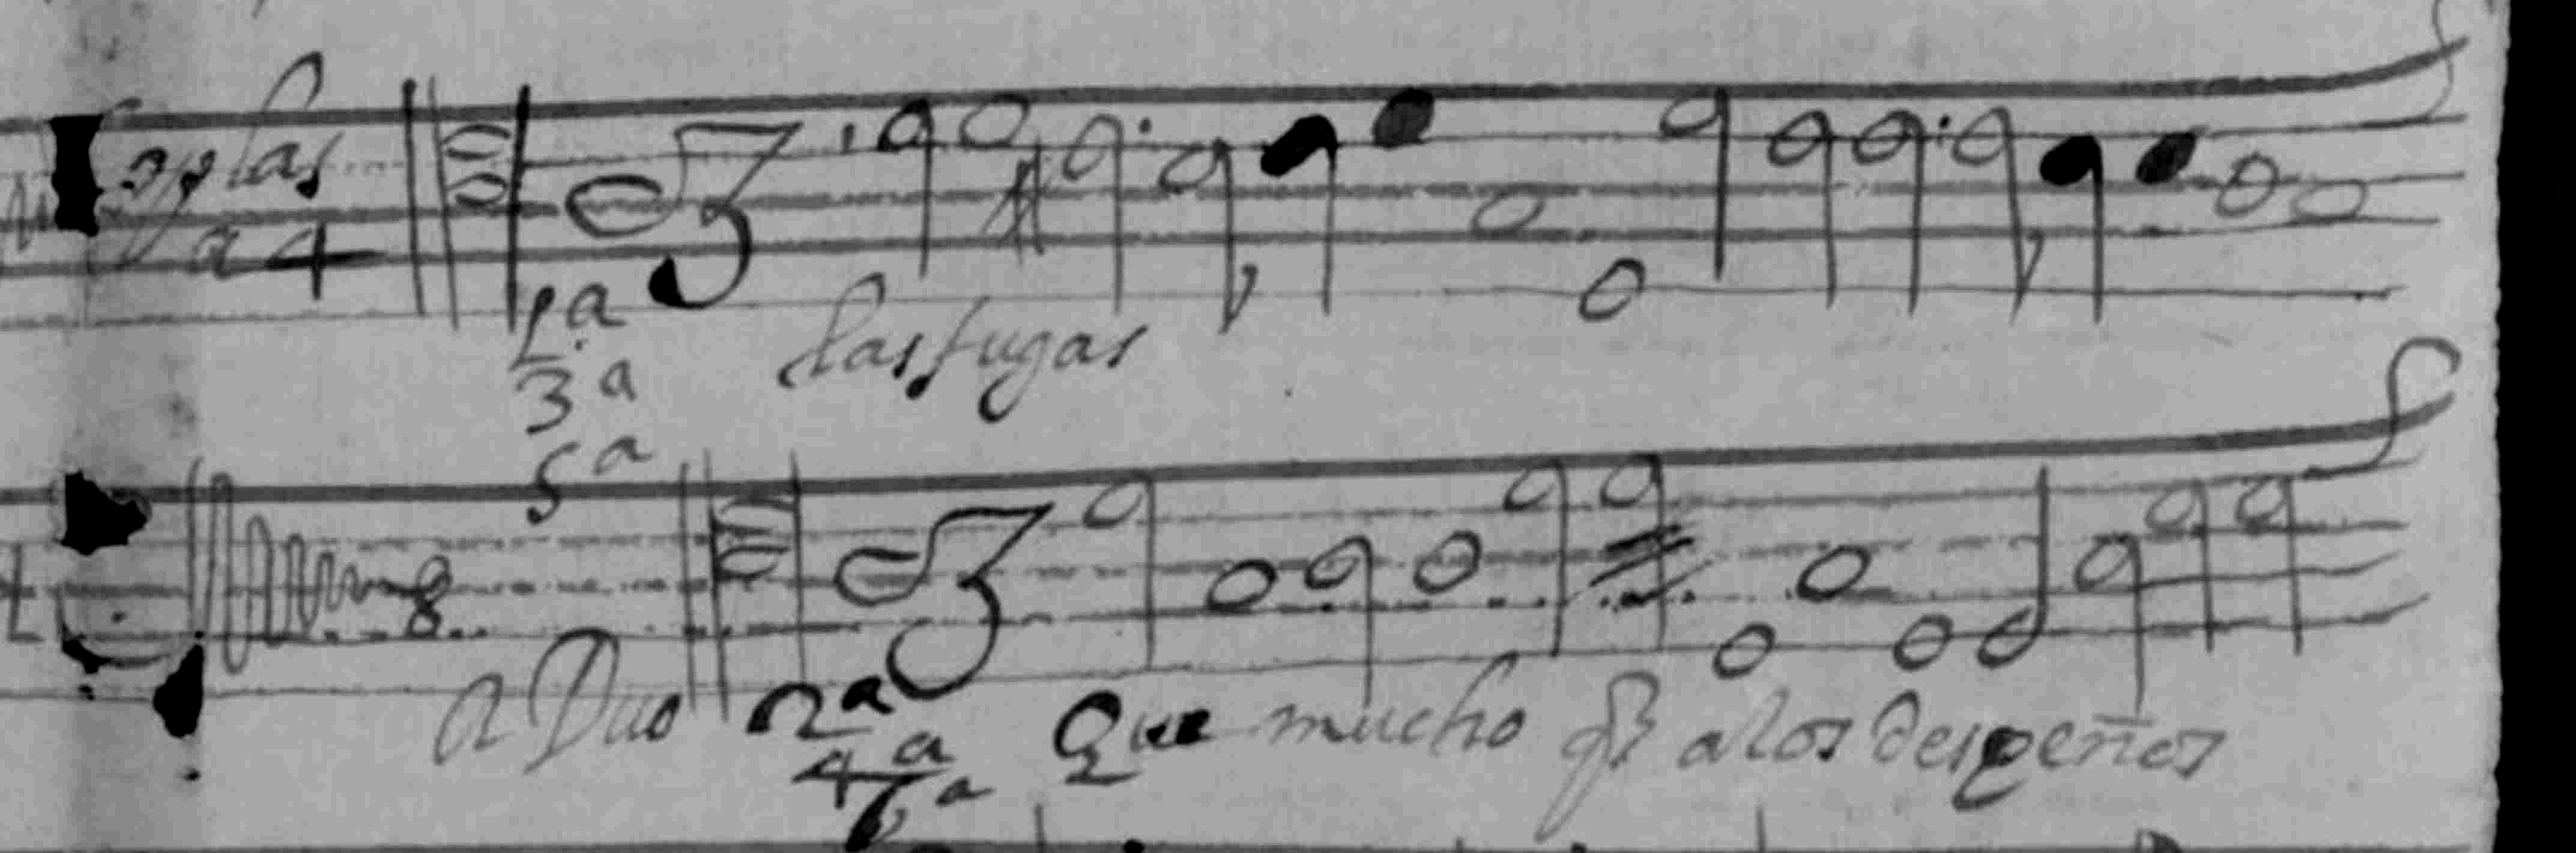 Coplas
a 4
1.a
3a
5a
las fugas
8
a Duo 2a
4a
6a
Que mucho q̃ a los despeños